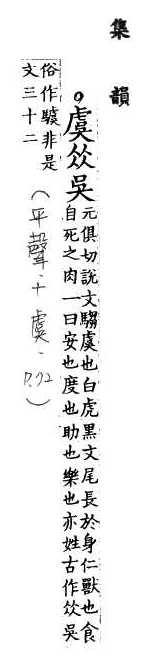 集韻
。虞㕦吳
元俱切說文騶虞也白虎黑文尾長於身仁獸也食
自死之肉一曰安也度也助也樂也亦姓古作㕦吳
俗作驉非是
文三十二
(平聲·十虞·P.72)